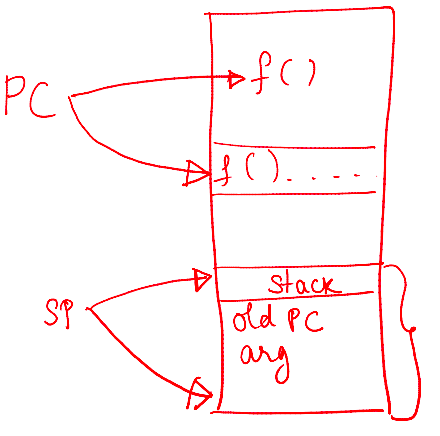 PC
f()
f().....
SP
stack
old PC
arg